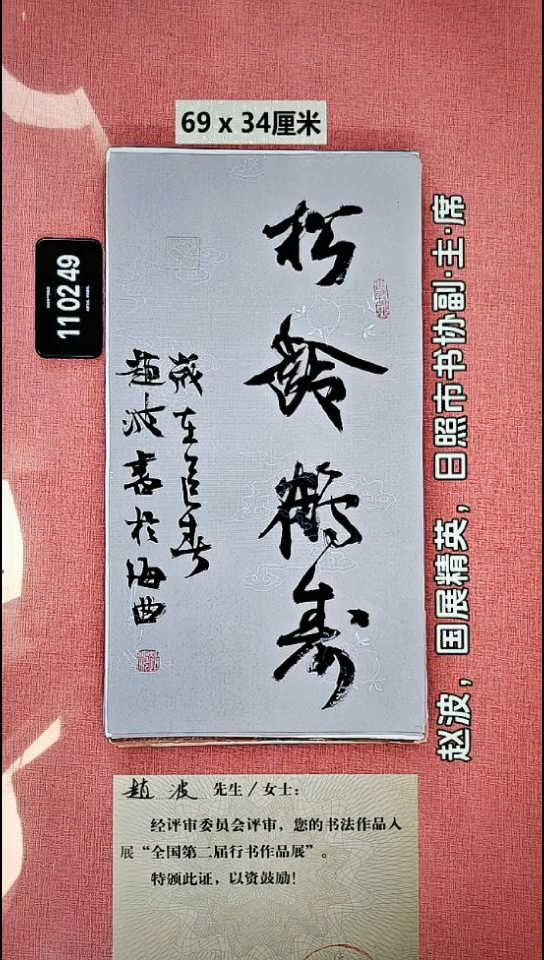 69 x 34厘米
11 02 49
松龄鹤寿
岁在乙巳春
赵波书于海曲
赵波，国展精英，日照市书协副·主·席
趙波 先生／女士：
经评审委员会评审，您的书法作品入
展“全国第二届行书作品展”。
特颁此证，以资鼓励！